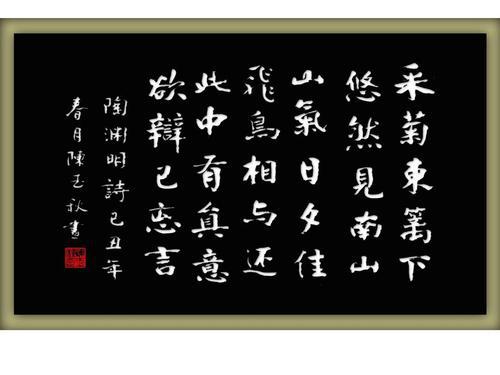 采菊東篱下
悠然見南山
山氣日夕佳
飛鳥相与还
此中有真意
欲辯已忘言
陶渊明詩己丑年
春月陳玉秋書